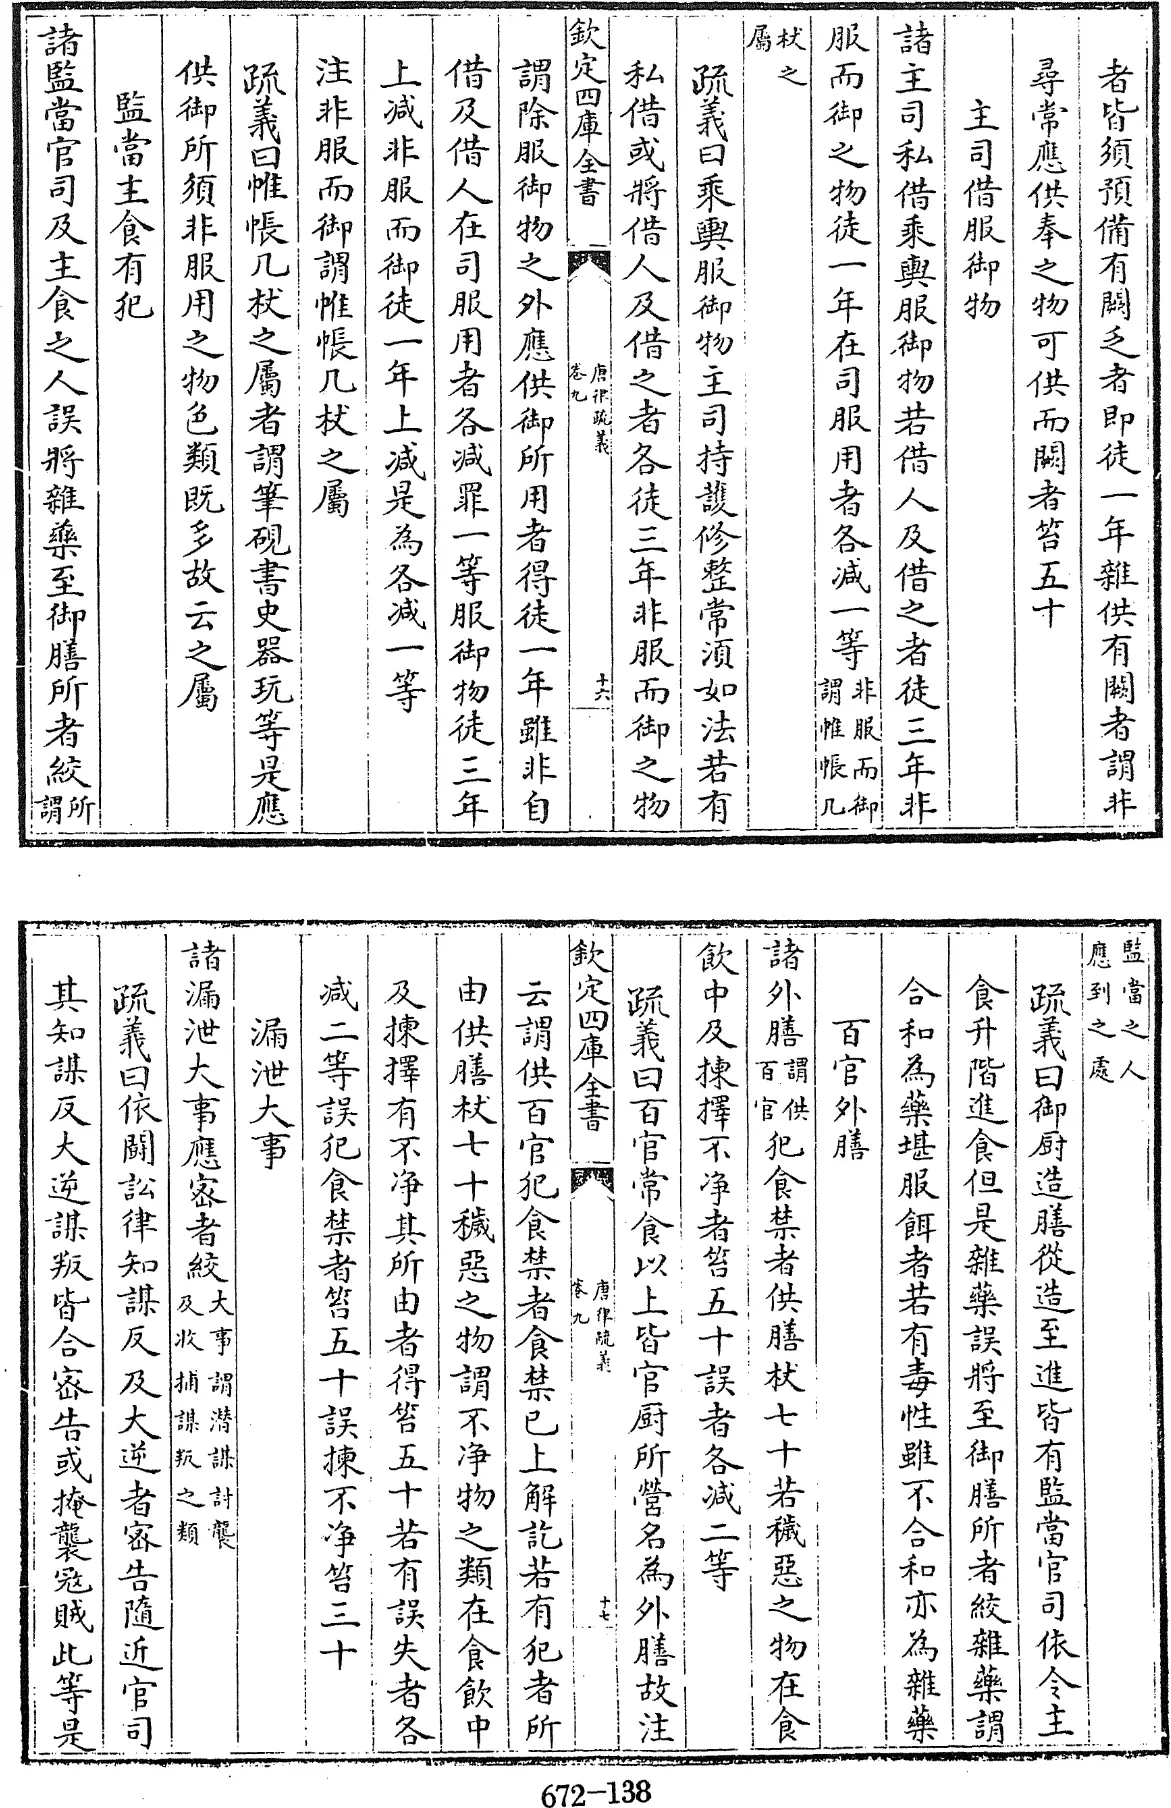 者皆須預備有闕乏者即徒一年雜供有闕者謂非
尋常應供奉之物可供而闕者笞五十
主司借服御物
諸主司私借乘輿服御物若借人及借之者徒三年非
服而御之物徒一年在司服用者各減一等非服而御謂帷帳几
杖之屬
疏義曰乘輿服御物主司持護修整常須如法若有
私借或將借人及借之者各徒三年非服而御之物
欽定四庫全書
唐律疏義
卷九
十六
謂除服御物之外應供御所用者得徒一年雖非自
借及借人在司服用者各減罪一等服御物徒三年
上減非服而御徒一年上減是為各減一等
注非服而御謂帷帳几杖之屬
疏義曰帷帳几杖之屬者謂筆硯書史器玩等是應
供御所須非服用之物色類既多故云之屬
監當主食有犯
諸監當官司及主食之人誤將雜藥至御膳所者絞所謂
監當之人應到之處
疏義曰御厨造膳從造至進皆有監當官司依令主
食升階進食但是雜藥誤將至御膳所者絞雜藥謂
合和為藥堪服餌者若有毒性雖不合和亦為雜藥
百官外膳
諸外膳謂供百官犯食禁者供膳杖七十若穢惡之物在食
飲中及揀擇不净者笞五十誤者各減二等
疏義曰百官常食以上皆官厨所營名為外膳故注
欽定四庫全書
唐律疏義
卷九
十七
云謂供百官犯食禁者食禁已上解訖若有犯者所
由供膳杖七十穢惡之物謂不净物之類在食飲中
及揀擇有不净其所由者得笞五十若有誤失者各
減二等誤犯食禁者笞五十誤揀不净笞三十
漏泄大事
諸漏泄大事應密者絞大事謂潛謀討襲及收捕謀叛之類
疏義曰依鬬訟律知謀反及大逆者密告隨近官司
其知謀反大逆謀叛皆合密告或掩襲寇賊此等是
672-138